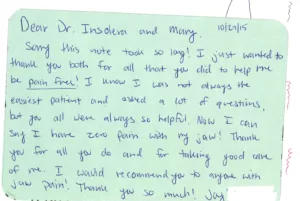 Dear Dr. Insolera and Mary, 10/29/15
Sorry this note took so long! I just wanted to
thank you both for all that you did to help me
be pain free! I know I was not always the
easiest patient and asked a lot of questions,
but you all were always so helpful. Now I can
say I have zero pain with my jaw! Thank
you for all you do and for taking good care
of me. I would recommend you to anyone with
jaw pain! Thank you so much! Jay